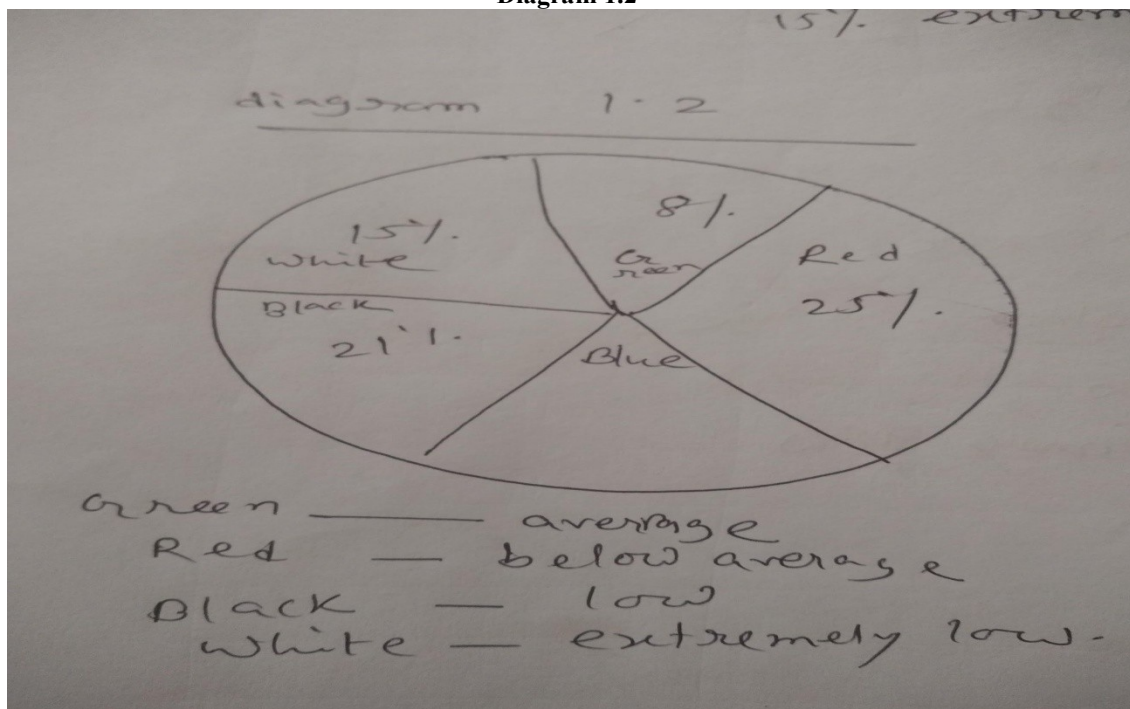 Diagram 1.2
15% extrem
diagram 1.2
8%.
15%.
Green
Red
White
25%.
Black
21%.
Blue
Green — average
Red — below average
Black — low
White — extremely low.